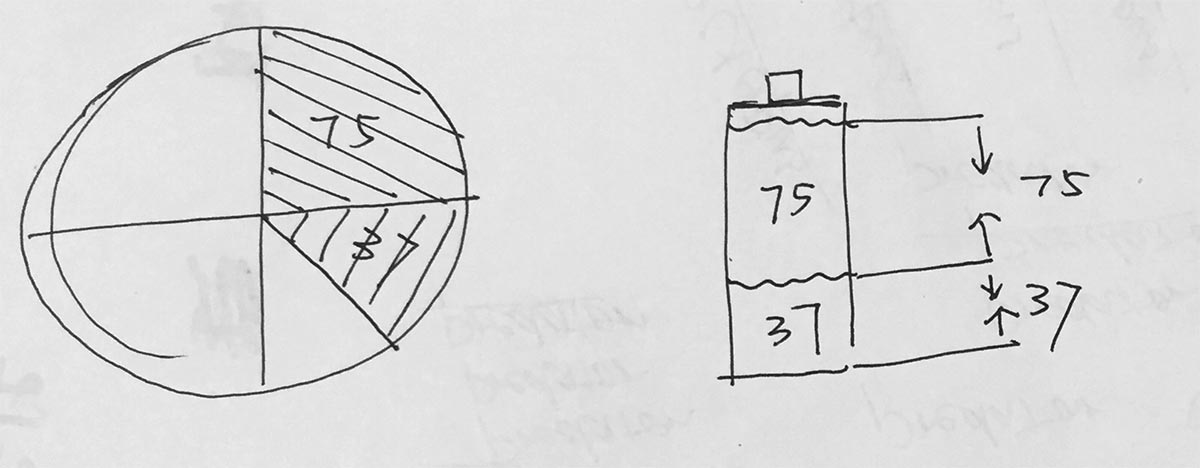 75
37
75
37
75
37